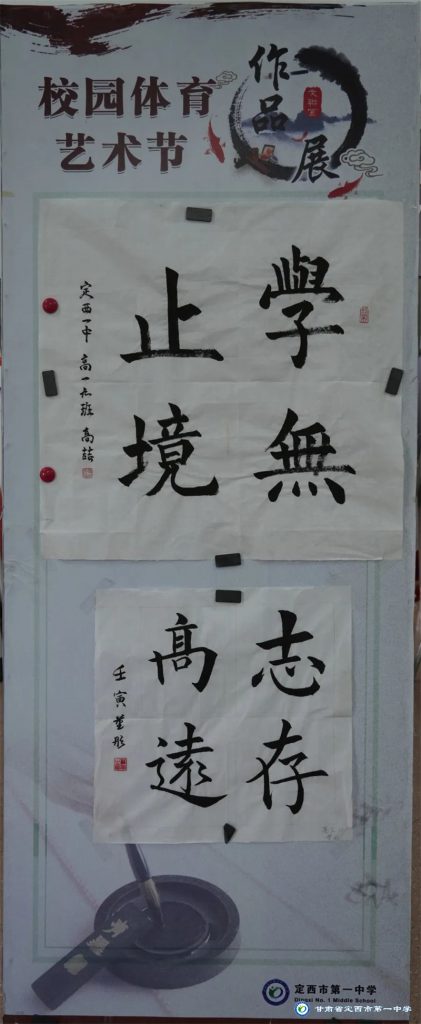 校园体育
艺术节
作品
展
學無
止境
定西一中 高一
班 高
志存
高遠
壬寅
定西市第一中学
Dingxi No. 1 Middle School
甘肃省定西市第一中学